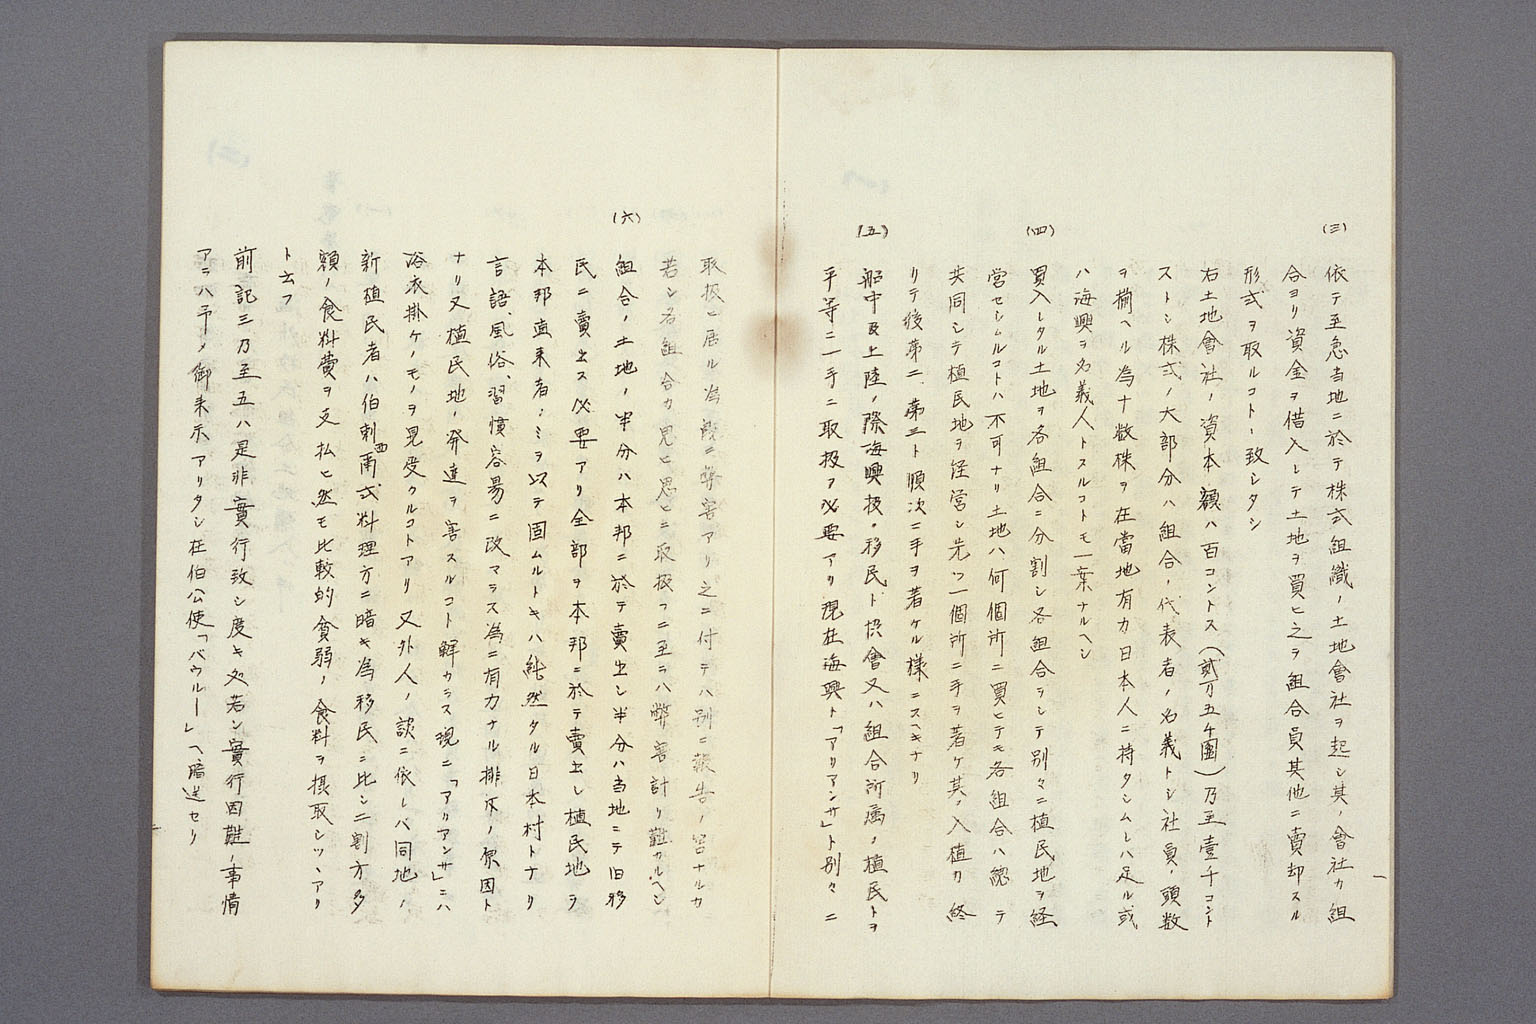 (三)
依テ至急当地ニ於テ株式組織ノ土地會社ヲ起シ其ノ會社カ組
合ヨリ資金ヲ借入レテ土地ヲ買ヒ之ヲ組合員其他ニ賣却スル
形式ヲ取ルコトニ致シタシ
右土地會社ノ資本額ハ百コントス(貳万五千圓)乃至壹千コント
ストシ株式ノ大部分ハ組合ノ代表者ノ名義トシ社員ノ頭数
ヲ揃ヘル為十数株ヲ在當地有力日本人ニ持タシムレハ足ル或
ハ海興ヲ名義人トスルコトモ一案ナルヘシ
(四)
買入レタル土地ヲ各組合ニ分割シ各組合ヲシテ別々ニ植民地ヲ経
営セシムルコトハ不可ナリ土地ハ何個所ニ買ヒテモ各組合ハ總テ
共同シテ植民地ヲ经営シ先ツ一個所ニ手ヲ著ケ其ノ入植カ終
リテ後第二、第三ト順次ニ手ヲ著ケル様ニスヘキナリ
(五)
船中及上陸ノ際海興扱ノ移民ト協會又ハ組合所属ノ植民トヲ
平等ニ一手ニ取扱フ必要アリ現在海興ト「アリアンサ」ト別々ニ
取扱ヒ居ル為既ニ弊害アリ之ニ付テハ別ニ報告ノ筈ナルカ
若シ各組合カ思ヒ思ヒニ取扱フニ至ラハ弊害計リ難カルヘシ
(六)
組合ノ土地ノ半分ハ本邦ニ於テ賣出シ半分ハ当地ニテ旧移
民ニ賣出ス必要アリ全部ヲ本邦ニ於テ賣出シ植民地ヲ
本邦直来者ノミヲ以テ固ムルトキハ純然タル日本村トナリ
言語、風俗、習慣容易ニ改マラス為ニ有力ナル排斥ノ原因ト
ナリ又植民地ノ発達ヲ害スルコト鮮カラス現ニ「アリアンサ」ニハ
浴衣掛ケノモノヲ見受クルコトアリ又外人ノ談ニ依レバ同地ノ
新植民者ハ伯剌西爾式料理方ニ暗キ為移民ニ比シ二割方多
額ノ食料費ヲ支払ヒ然モ比較的貧弱ノ食料ヲ摂取シツヽアリ
ト云フ
前記三乃至五ハ是非實行致シ度キ処若シ實行困難ノ事情
アラハ予メ御来示アリタシ在伯公使「バウルー」ヘ暗送セリ